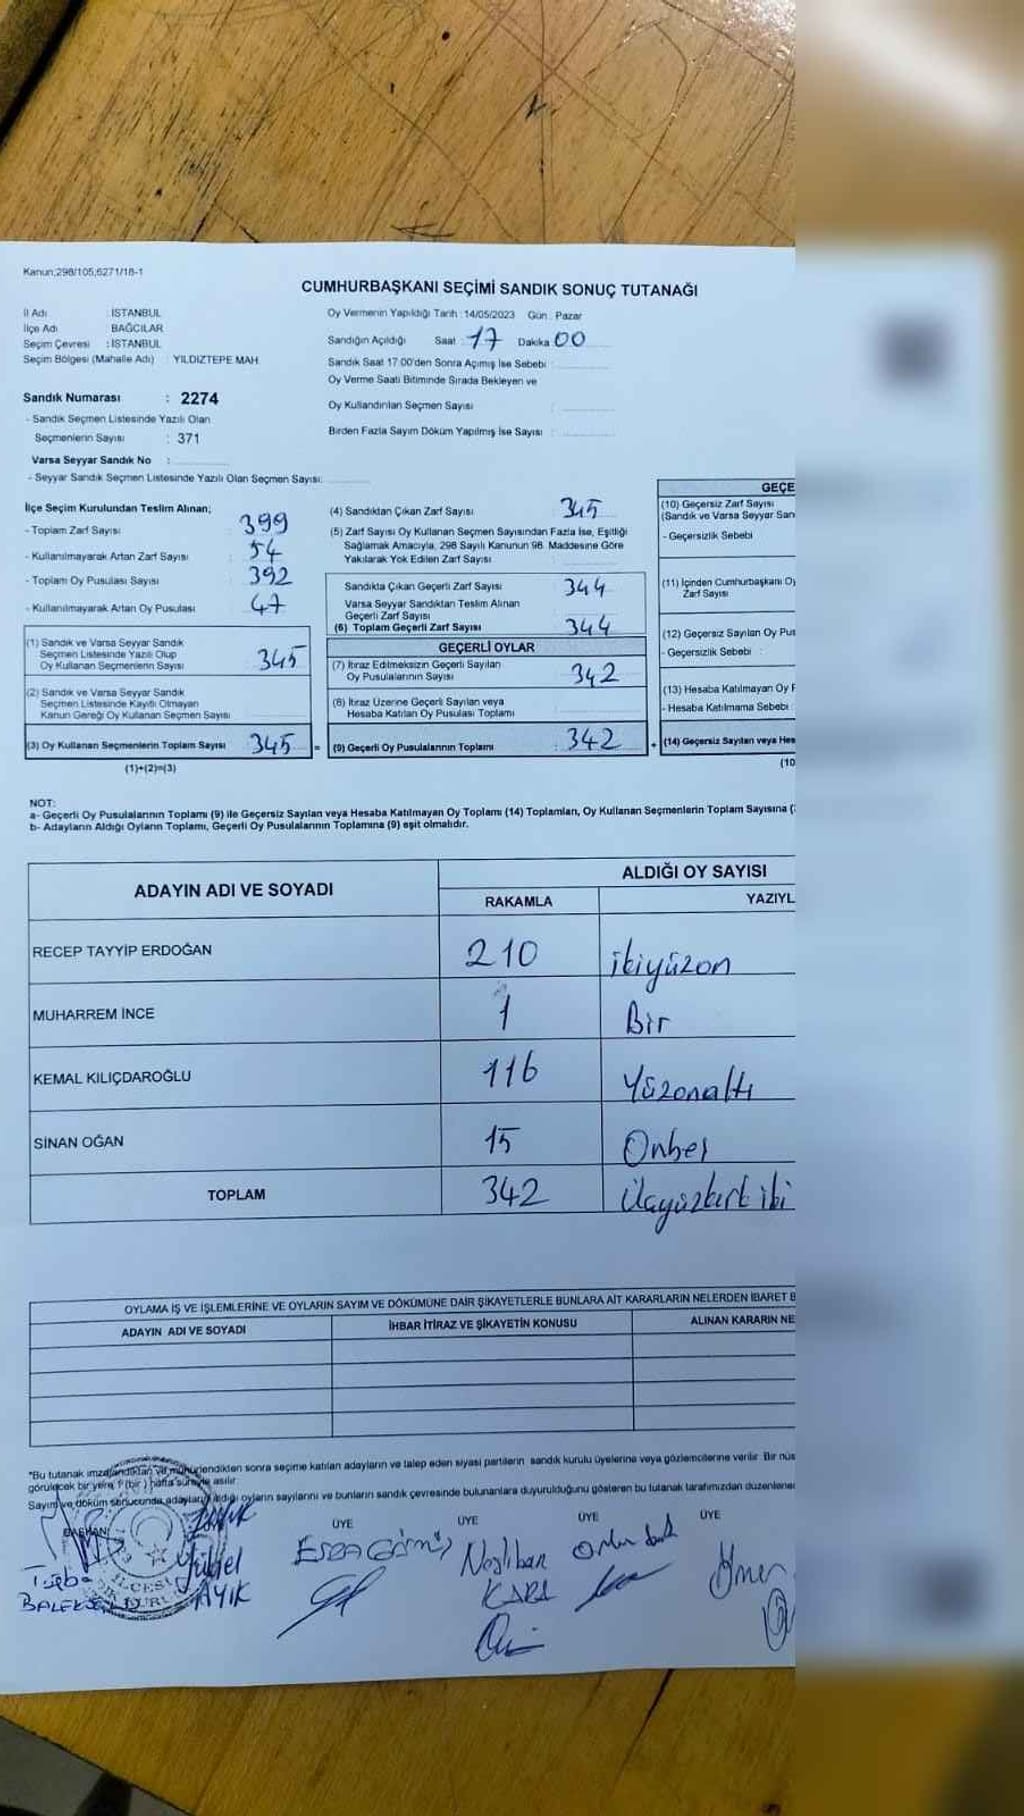 Kanun;298/105;6271/18-1
CUMHURBAŞKANI SEÇİMİ SANDIK SONUÇ TUTANAĞI
İl Adı : İSTANBUL
İlçe Adı BAĞCILAR
Seçim Çevresi : İSTANBUL
Seçim Bölgesi (Mahalle Adı) : YILDIZTEPE MAH.
Sandık Numarası : 2274
- Sandık Seçmen Listesinde Yazılı Olan
Seçmenlerin Sayısı : 371
Varsa Seyyar Sandık No :
- Seyyar Sandık Seçmen Listesinde Yazılı Olan Seçmen Sayısı:
Oy Vermenin Yapıldığı Tarih :14/05/2023 Gün : Pazar
Sandığın Açıldığı Saat : 17 Dakika 00
Sandık Saat 17:00'den Sonra Açımış İse Sebebi :
Oy Verme Saati Bitiminde Sırada Bekleyen ve
Oy Kullandırılan Seçmen Sayısı :
Birden Fazla Sayım Döküm Yapılmış İse Sayısı :
İlçe Seçim Kurulundan Teslim Alınan;
- Toplam Zarf Sayısı : 399
- Kullanılmayarak Artan Zarf Sayısı : 54
- Toplam Oy Pusulası Sayısı : 392
- Kullanılmayarak Artan Oy Pusulası : 47
(1) Sandık ve Varsa Seyyar Sandık
Seçmen Listesinde Yazılı Olup
Oy Kullanan Seçmenlerin Sayısı 345
(2) Sandık ve Varsa Seyyar Sandık
Seçmen Listesinde Kayıtlı Olmayan
Kanun Gereği Oy Kullanan Seçmen Sayısı
(3) Oy Kullanan Seçmenlerin Toplam Sayısı 345 =
(1)+(2)=(3)
(4) Sandıktan Çıkan Zarf Sayısı 345
(5) Zarf Sayısı Oy Kullanan Seçmen Sayısından Fazla İse, Eşitliği
Sağlamak Amacıyla, 298 Sayılı Kanunun 98. Maddesine Göre
Yakılarak Yok Edilen Zarf Sayısı
Sandıkta Çıkan Geçerli Zarf Sayısı 344
Varsa Seyyar Sandıktan Teslim Alınan
Geçerli Zarf Sayısı
(6) Toplam Geçerli Zarf Sayısı 344
GEÇERLİ OYLAR
(7) İtiraz Edilmeksizin Geçerli Sayılan
Oy Pusulalarının Sayısı 342
(8) İtiraz Üzerine Geçerli Sayılan veya
Hesaba Katılan Oy Pusulası Toplamı
(9) Geçerli Oy Pusulalarının Toplamı : 342 +
GEÇE
(10) Geçersiz Zarf Sayısı
(Sandık ve Varsa Seyyar San
- Geçersizlik Sebebi
(11) İçinden Cumhurbaşkanı Oy
Zarf Sayısı
(12) Geçersiz Sayılan Oy Pus
- Geçersizlik Sebebi :
(13) Hesaba Katılmayan Oy P
- Hesaba Katılmama Sebebi
(14) Geçersiz Sayılan veya Hes
(10
NOT:
a- Geçerli Oy Pusulalarının Toplamı (9) ile Geçersiz Sayılan veya Hesaba Katılmayan Oy Toplamı (14) Toplamları, Oy Kullanan Seçmenlerin Toplam Sayısına (
b- Adayların Aldığı Oyların Toplamı, Geçerli Oy Pusulalarının Toplamına (9) eşit olmalıdır.
ADAYIN ADI VE SOYADI
ALDIĞI OY SAYISI
RAKAMLA YAZIYL
RECEP TAYYİP ERDOĞAN 210 ikiyüzon
MUHARREM İNCE 1 Bir
KEMAL KILIÇDAROĞLU 116 Yüzonaltı
SİNAN OĞAN 15 Onbeş
TOPLAM 342 Üçyüzkırk iki
OYLAMA İŞ VE İŞLEMLERİNE VE OYLARIN SAYIM VE DÖKÜMÜNE DAİR ŞİKAYETLERLE BUNLARA AİT KARARLARIN NELERDEN İBARET B
ADAYIN ADI VE SOYADI İHBAR İTİRAZ VE ŞİKAYETİN KONUSU ALINAN KARARIN NE
*Bu tutanak imzalandıktan ve mühürlendikten sonra seçime katılan adayların ve talep eden siyasi partilerin sandık kurulu üyelerine veya gözlemcilerine verilir. Bir nüs
görülecek bir yere 1 (bir) hafta süreyle asılır.
Sayım ve döküm sonucunda adayların aldığı oyların sayılarını ve bunların sandık çevresinde bulunanlara duyurulduğunu gösteren bu tutanak tarafımızdan düzenlene
BAŞKAN ÜYE ÜYE ÜYE ÜYE
Tuğba
Yüksel
AYIK
ESRA GÜMÜŞ
Neslihan
KARA
Ömer